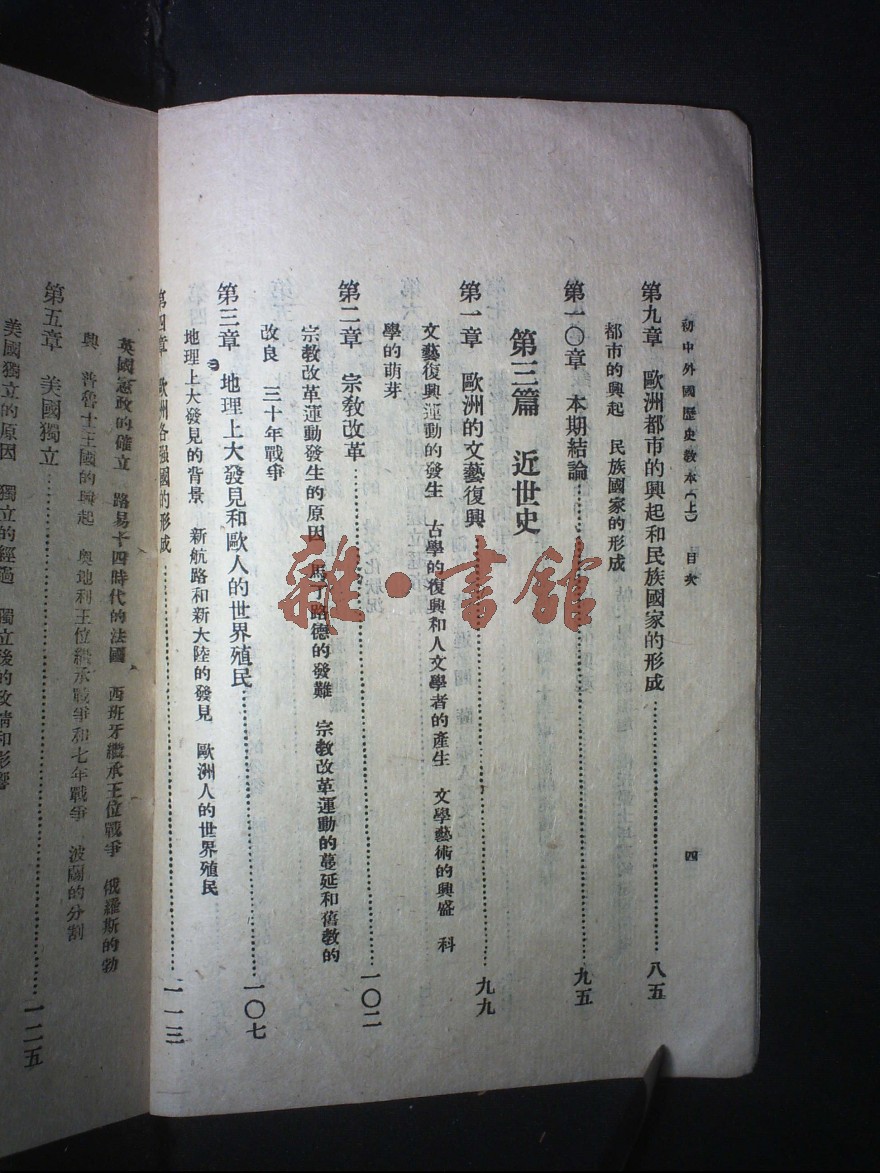 初中外國歷史教本(上) 目次 四
第九章 歐洲都市的興起和民族國家的形成……八五
都市的興起 民族國家的形成
第一〇章 本期結論……九五
第三篇 近世史
第一章 歐洲的文藝復興……九九
文藝復興運動的發生 古學的復興和人文學者的產生 文學藝術的興盛 科
學的萌芽
第二章 宗教改革……一〇二
宗教改革運動發生的原因 馬丁路德的發難 宗教改革運動的蔓延和舊教的
改良 三十年戰爭
第三章 地理上大發見和歐人的世界殖民……一〇七
地理上大發見的背景 新航路和新大陸的發見 歐洲人的世界殖民
第四章 歐洲各强國的形成……一一三
英國憲政的確立 路易十四時代的法國 西班牙繼承王位戰爭 俄羅斯的勃
興 普魯士王國的興起 奧地利王位繼承戰爭和七年戰爭 波蘭的分割
第五章 美國獨立……一二五
美國獨立的原因 獨立的經過 獨立後的政情和影響
雜·書館